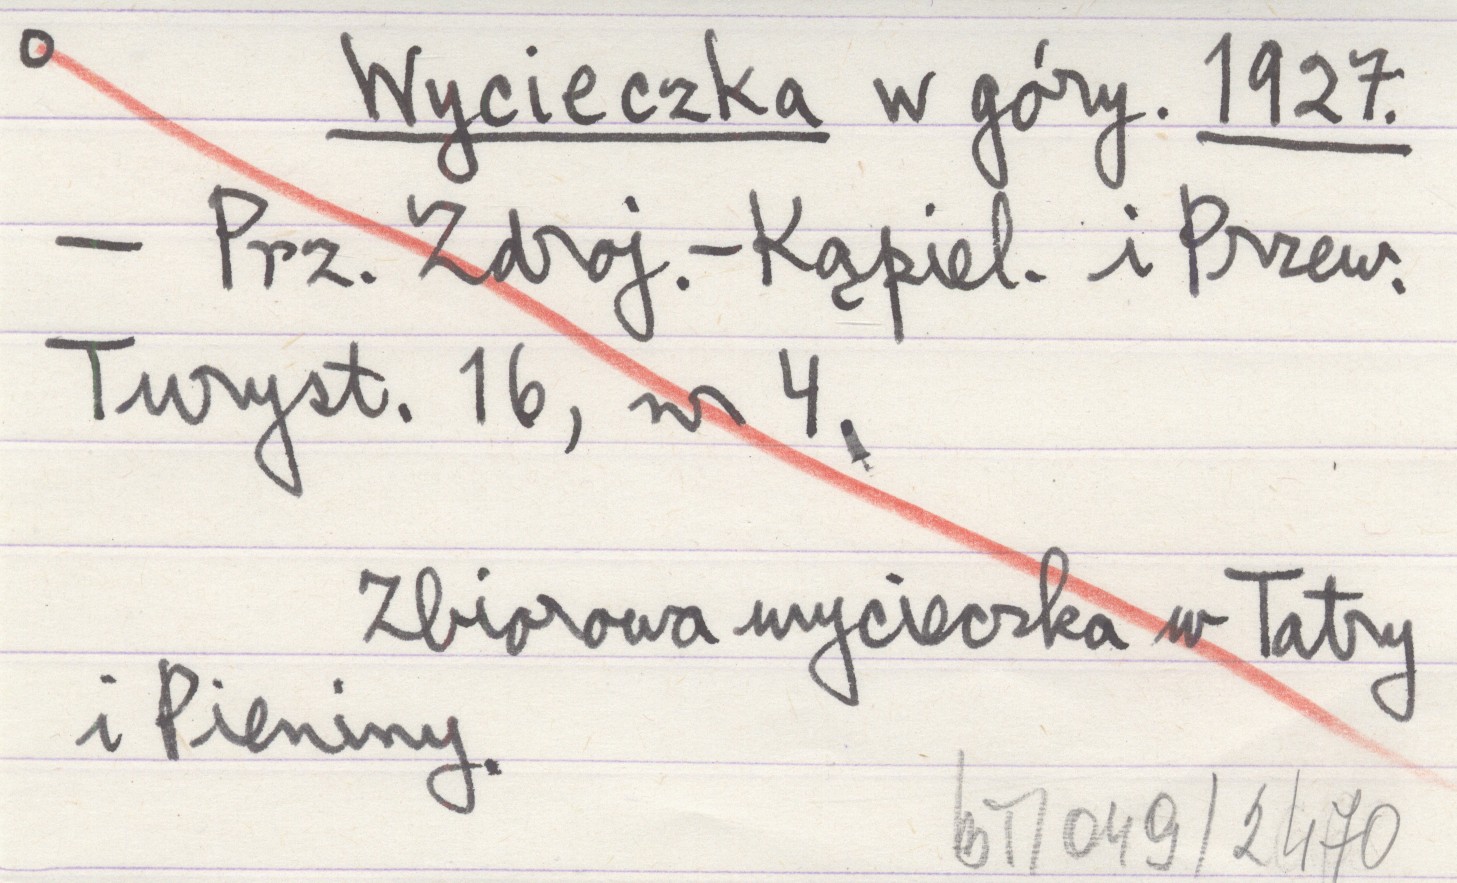 O
Wycieczka w góry. 1927.
– Prz. Zdroj.-Kąpiel. i Przew.
Turyst. 16, nr 4.
Zbiorowa wycieczka w Tatry
i Pieniny.
bT/049/2470